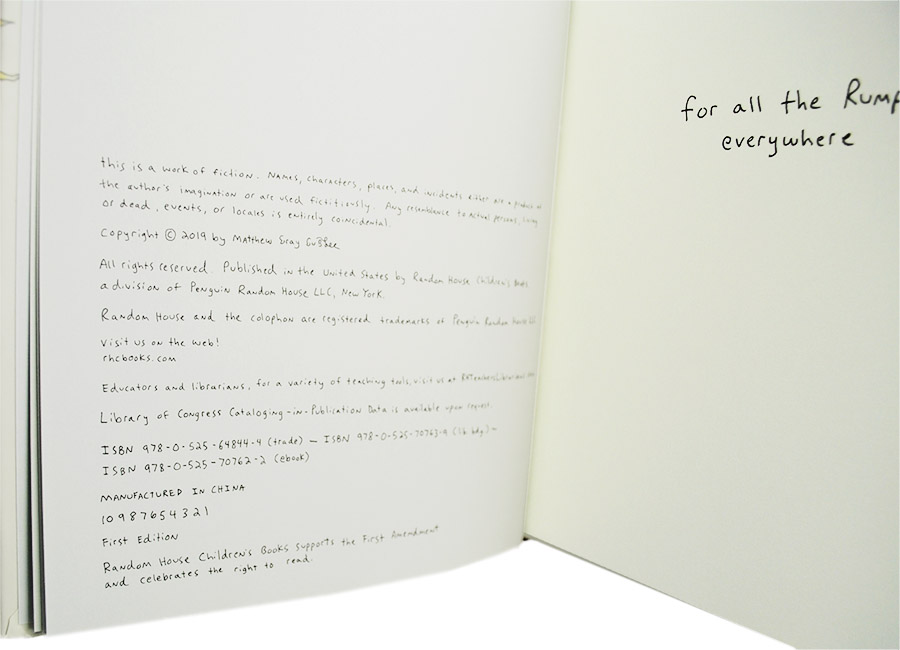 this is a work of fiction. Names, characters, places, and incidents either are a product of
the author's imagination or are used fictitiously. Any resemblance to actual persons, living
or dead, events, or locales is entirely coincidental.
Copyright © 2019 by Matthew Gray Gubler
All rights reserved. Published in the United States by Random House Children's Books
a division of Penguin Random House LLC, New York.
Random House and the colophon are registered trademarks of Penguin Random House LLC
visit us on the web!
rhcbooks.com
Educators and librarians, for a variety of teaching tools, visit us at
Library of Congress Cataloging-in-Publication Data is available upon request.
ISBN 978-0-525-64844-4 (trade) – ISBN 978-0-525-70763-9 (lib bdg.) –
ISBN 978-0-525-70762-2 (ebook)
MANUFACTURED IN CHINA
10 9 8 7 6 5 4 3 2 1
First Edition
Random House Children's Books supports the First Amendment
and celebrates the right to read.
for all the Rump
everywhere